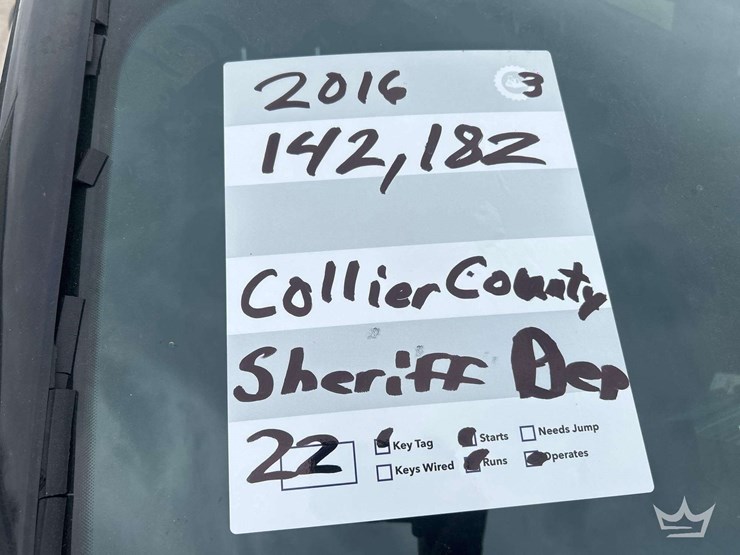 2016 3
142,182
Collier County
Sheriff Dep
22 Key Tag Starts Needs Jump
Keys Wired Runs Operates